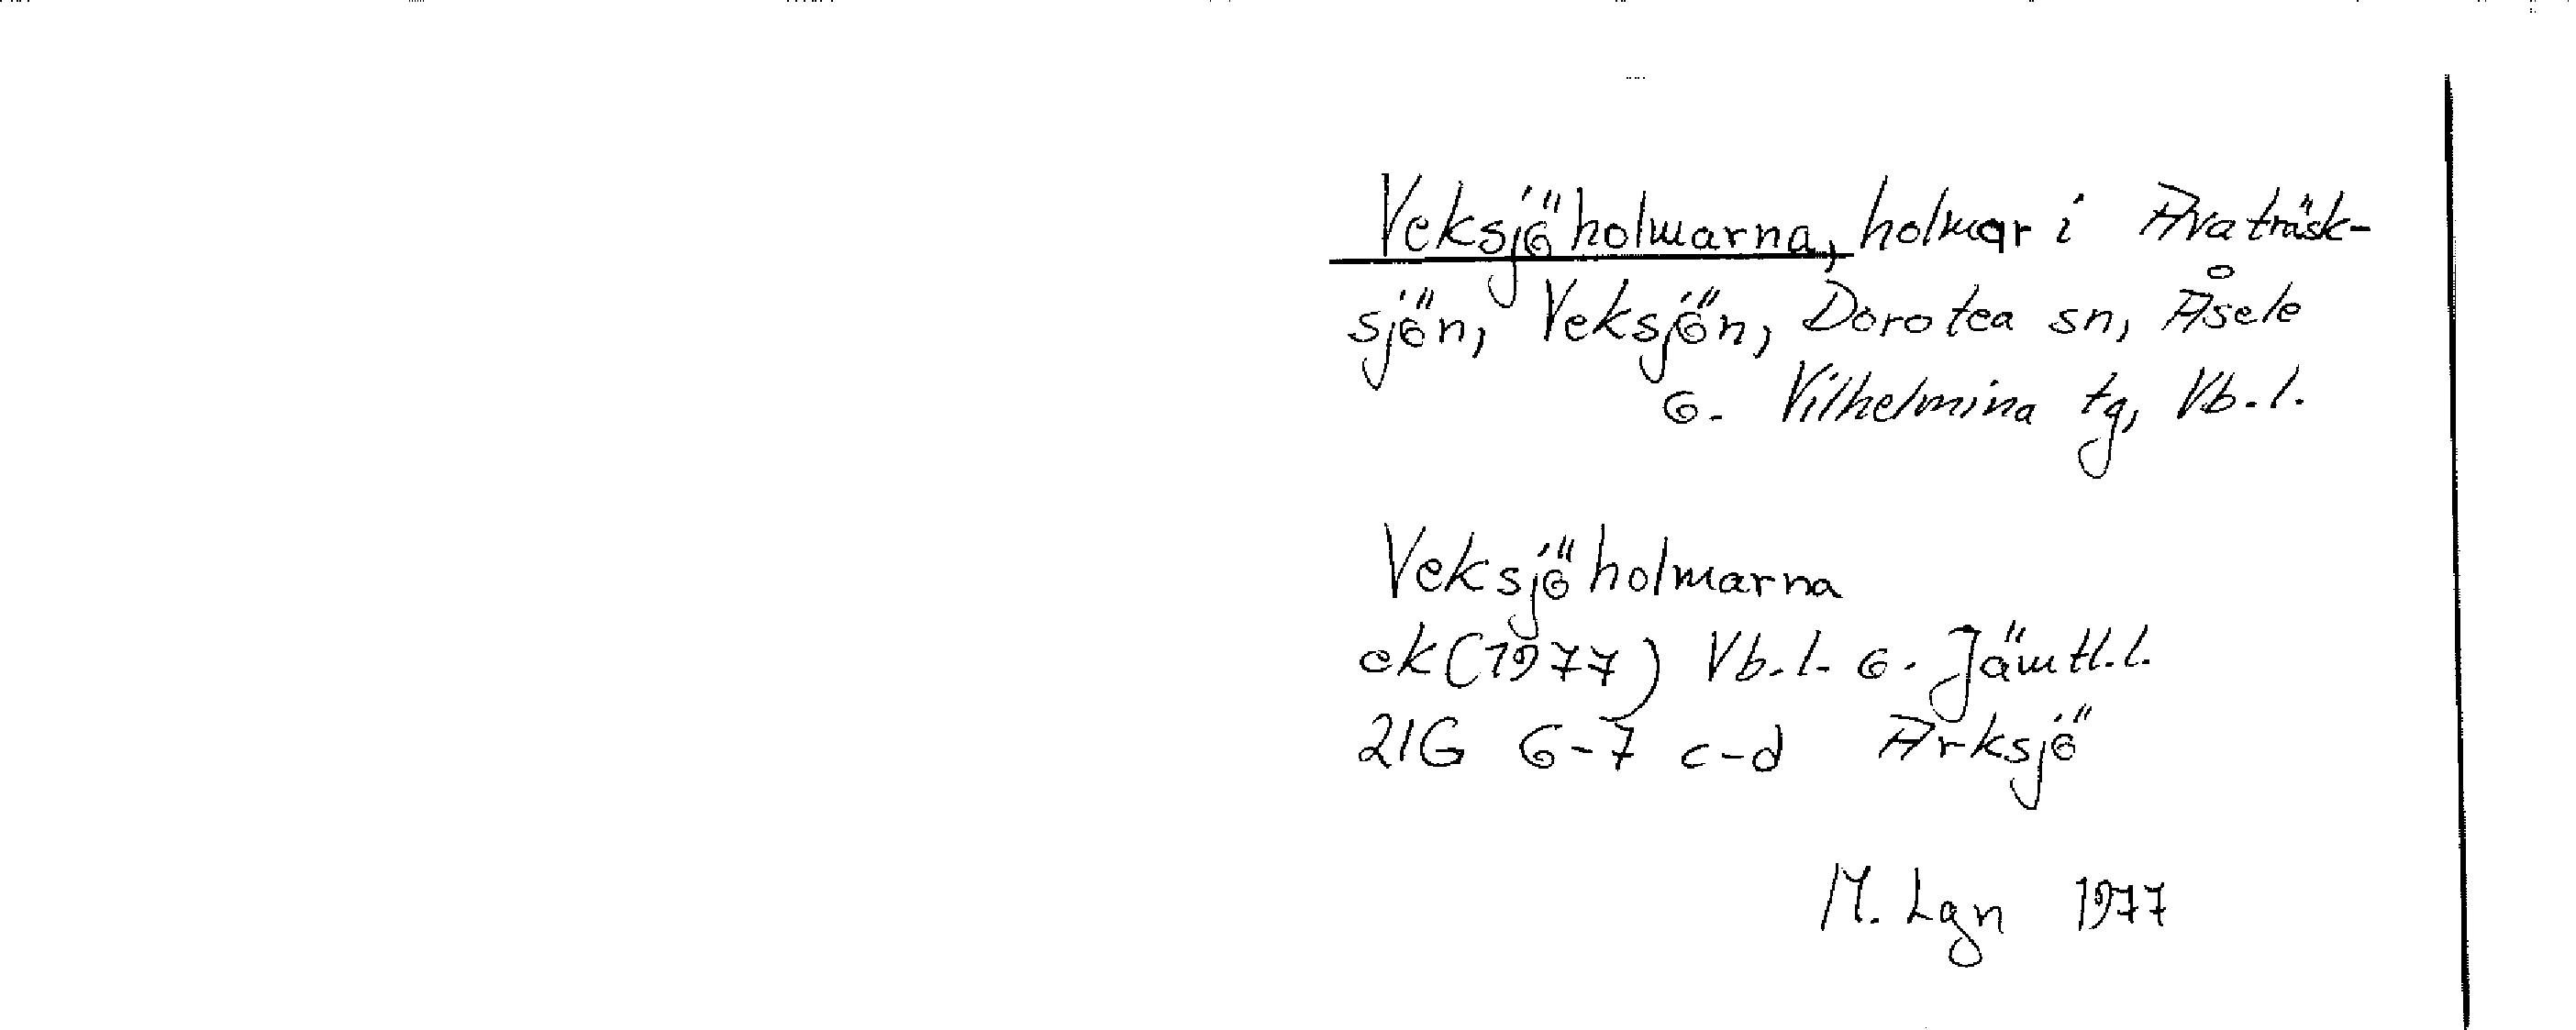 Veksjöholmarna, holmar i Avaträsk-
sjön, Veksjön, Dorotea sn, Åsele
o. Vilhelmina tg, Vb.l.
Veksjöholmarna
ek (1977) Vb.l. o. Jämtl.l.
21G 6-7 c-d Arksjö
M. Lgn 1977